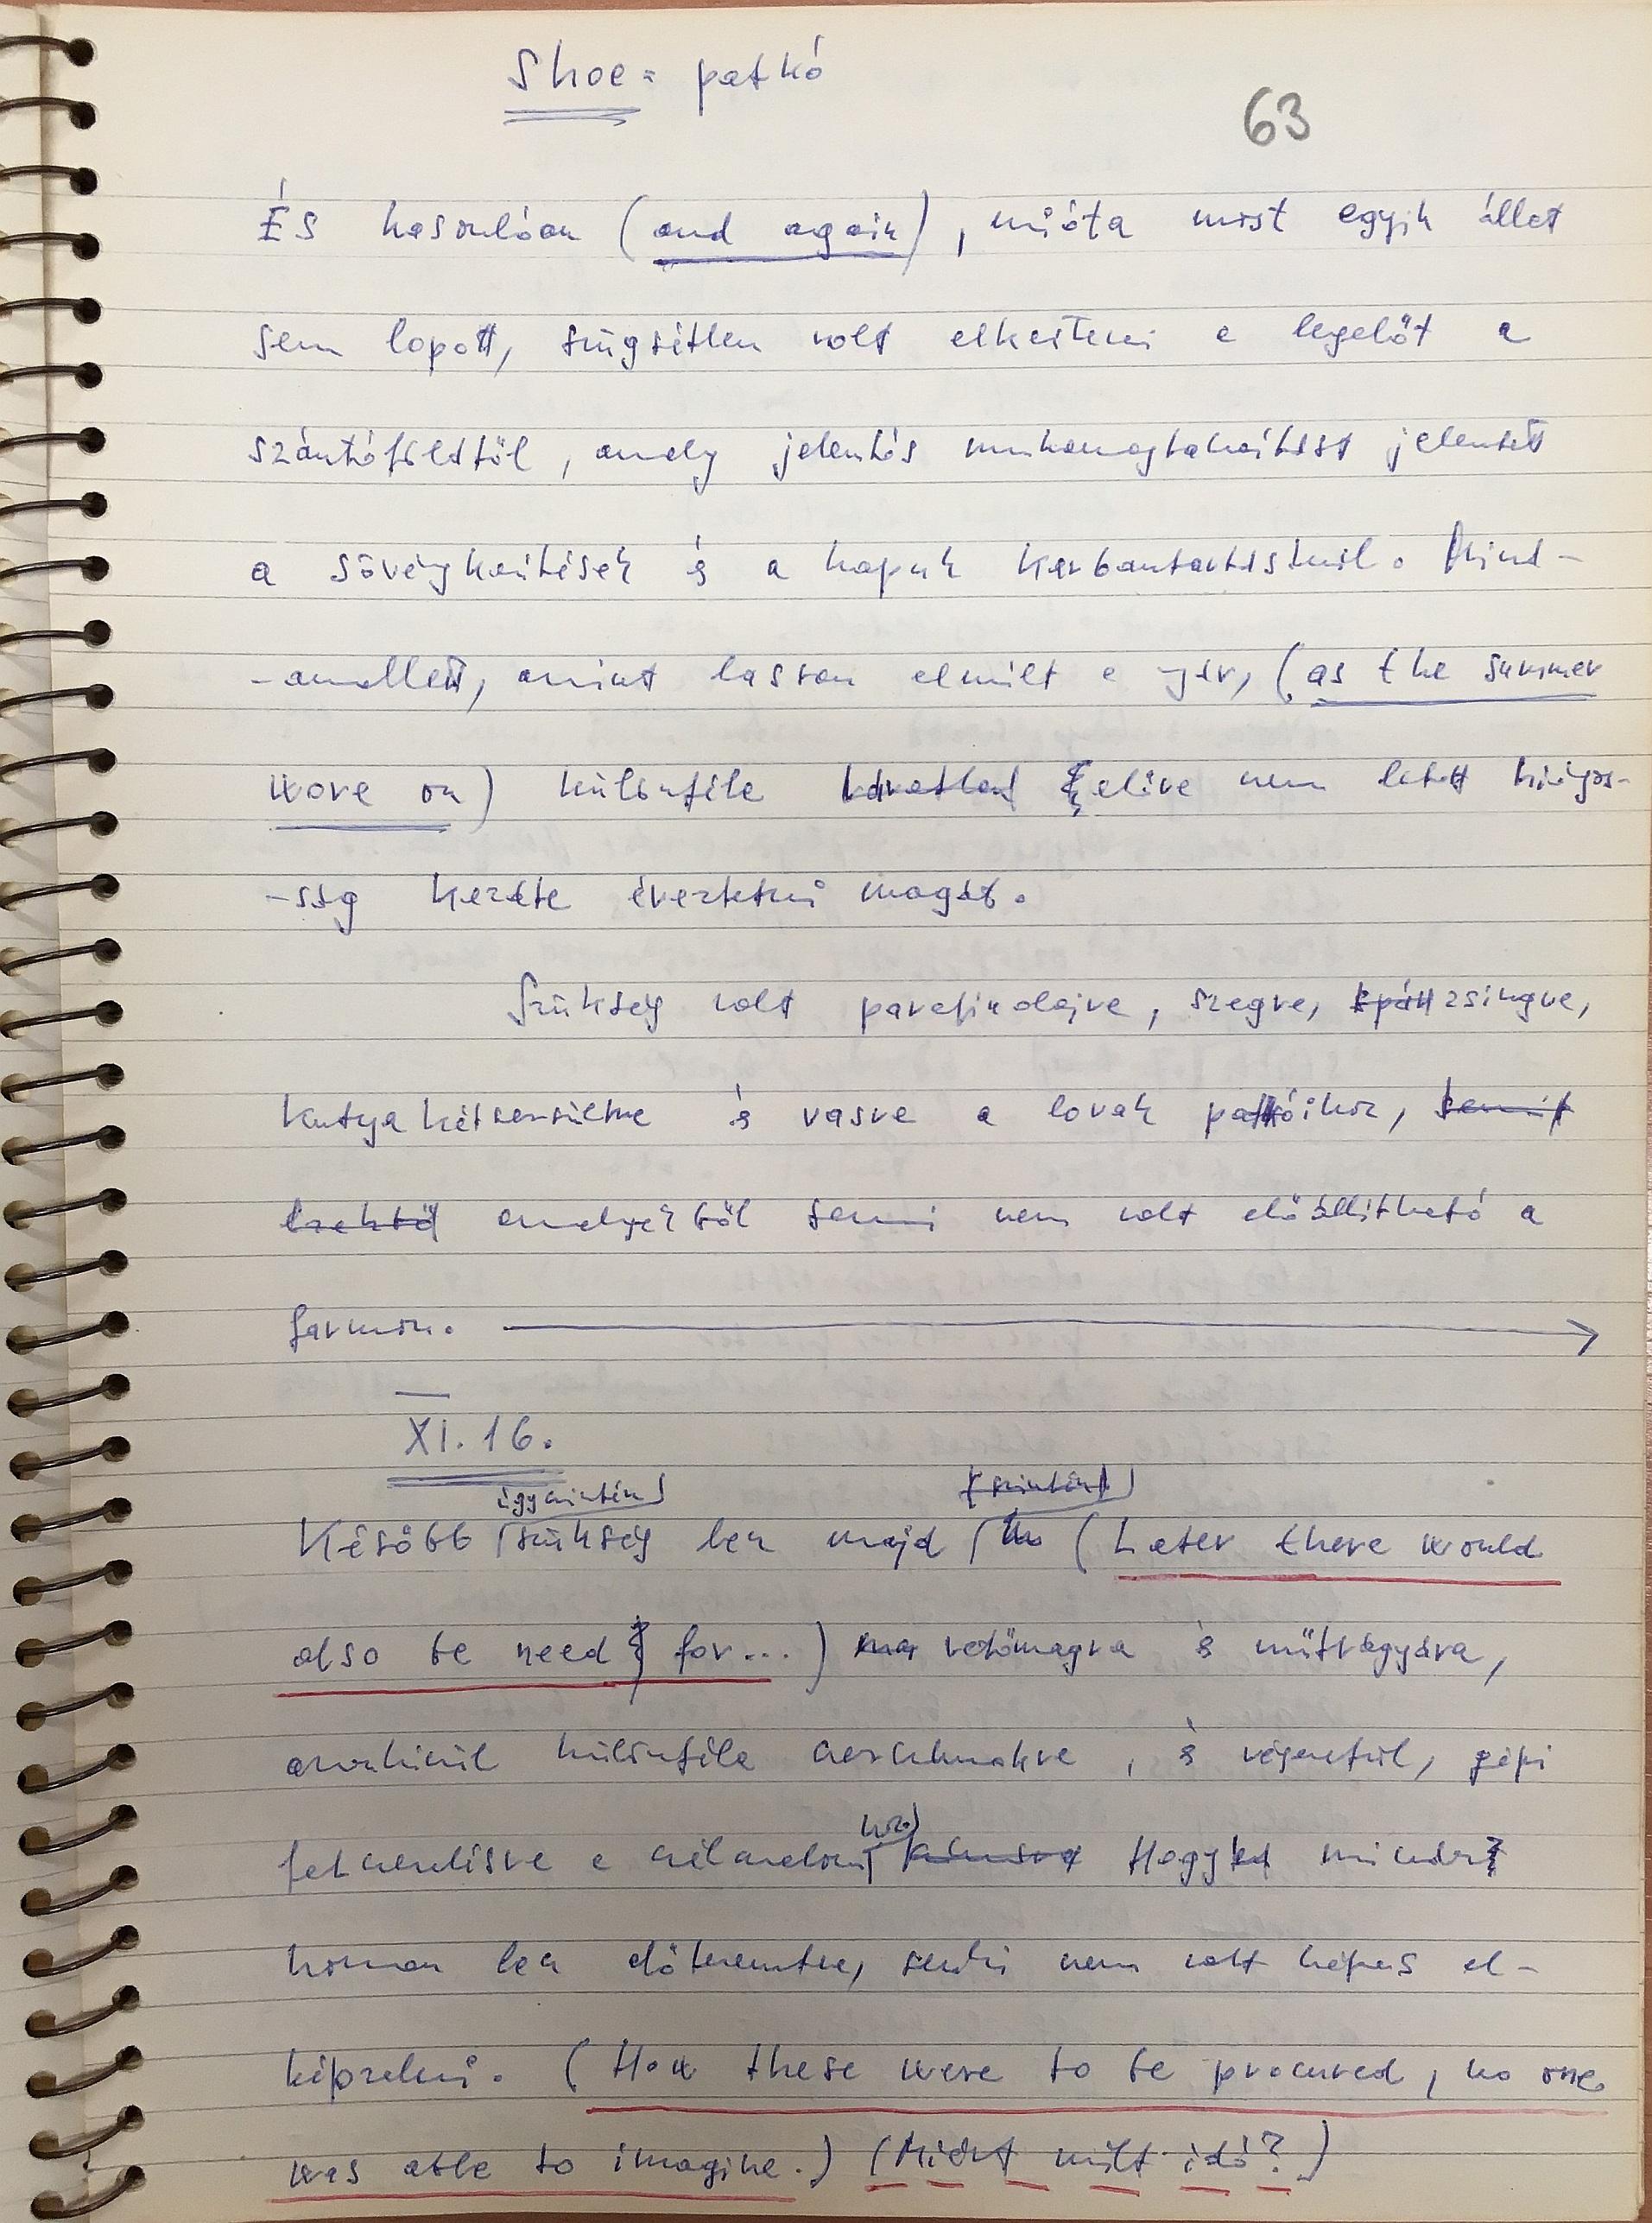 Shoe = patkó
63
És hasonlóan (and again), mióta most egyik állat
sem lopott, szügsétlen volt elkeríteni a legelőt a
szántóföldtől, amely jelentős munkamegtakarítást jelentett
a sövénykerítések és a kapuk karbantartásánál. Mind-
-amellett, amint lassan elmúlt a nyár, (as the summer
wore on) különféle előre nem látott hiányos-
-ság kezdte éreztetni magát.
Szükség volt parafinolajra, szegre, zsingre,
kutyakétszersültre és vasra a lovak patkóihoz,
amelyekből semmi nem volt előállítható a
farmon.
XI. 16.
úgyszintén
(szintén)
Később szükség lesz majd (Later there would
also be need for...) vetőmagra és műtrágyára,
azonkívül különféle szerszámokra, és végezetül, gépi
hoz
felszerelésre a szélmalom Hogy mindez
honnan lesz előteremtve, senki nem volt képes el-
képzelni. (How these were to be procured, no one
was able to imagine.) (Miért múlt idő?)